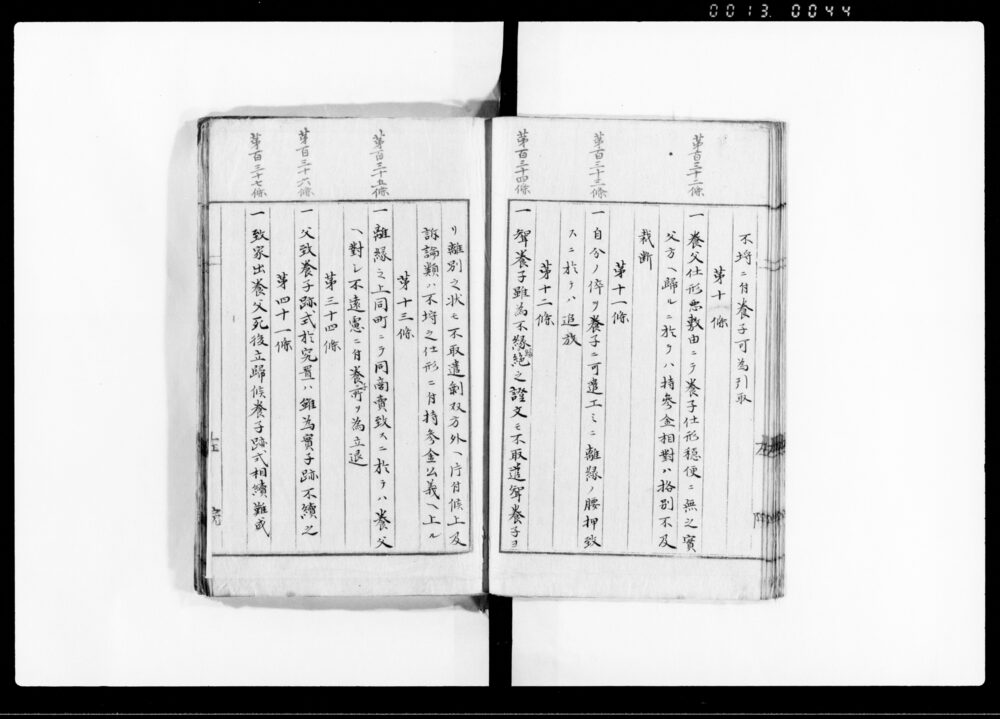 0013 0044
第百三十二條
第百三十三條
第百三十四條
不埒ニ付養子可為引取
第十條
一養父仕形悪敷由ニテ養子仕形穏便ニ無之實
父方ヘ歸ルニ於テハ持参金相對ハ格別不及
裁断
第十一條
一自分ノ倅ヲ養子ニ可遣工ミニ離縁ノ腰押致
スニ於テハ追放
第十二條
一聟養子雖為不縁絶之證文モ不取遣聟養子ヨ
第百三十五條
第百三十六條
第百三十七條
リ離別之状モ不取遣剰双方外ヘ片付候上及
訴論類ハ不埒之仕形ニ付持参金公義ヘ上ル
第十三條
一離縁之上同町ニテ同商賣致スニ於テハ養父
ヘ對シ不遠慮ニ付養所ヲ為立退
第三十四條
一父致養子跡式於究置ハ雖為實子跡不續之
第四十一條
一致家出養父死後立歸候養子跡式相續難成
左院